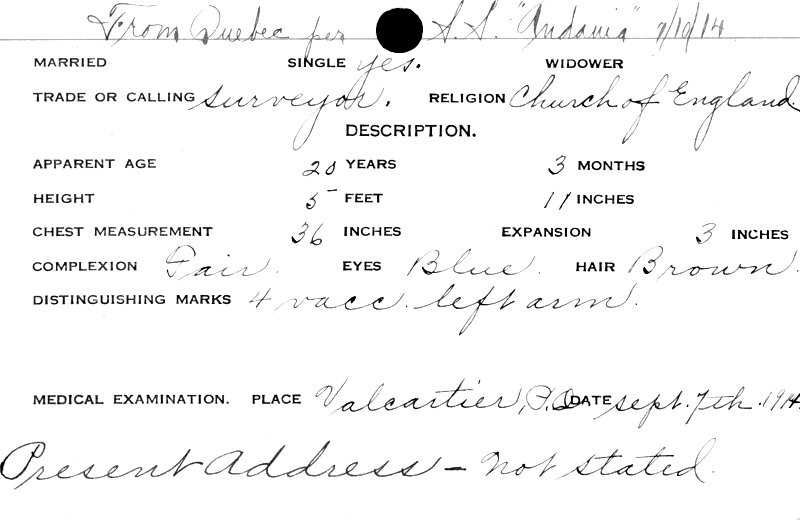 From Quebec per S.S. "Andania" 7/10/14
MARRIED SINGLE yes. WIDOWER
TRADE OR CALLING surveyor. RELIGION Church of England.
DESCRIPTION.
APPARENT AGE 20 YEARS 3 MONTHS
HEIGHT 5 FEET 11 INCHES
CHEST MEASUREMENT 36 INCHES EXPANSION 3 INCHES
COMPLEXION Fair. EYES Blue. HAIR Brown.
DISTINGUISHING MARKS 4 vacc. left arm.
MEDICAL EXAMINATION. PLACE Valcartier, P.Q. DATE sept. 7th. 1914.
Present Address - not stated.